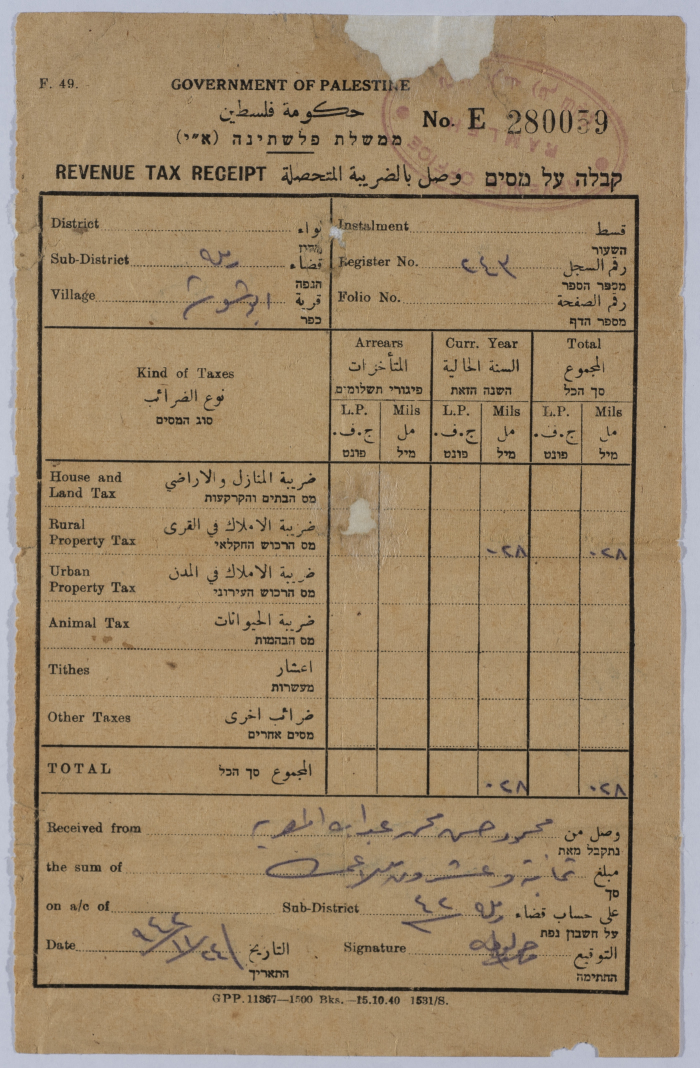 F. 49.
GOVERNMENT OF PALESTINE
حكومة فلسطين
ממשלת פלשתינה (א״י)
No. E 280059
REVENUE TAX RECEIPT وصل بالضريبة المتحصلة קבלה על מסים
District لواء מחוז
Sub-District رملة قضاء הנפה
Village ابو شوشة قرية כפר
Instalment قسط השעור
Register No. ٢٤٣ رقم السجل מספר הספר
Folio No. رقم الصفحة מספר הדף
Kind of Taxes
نوع الضرائب
סוג המסים
Arrears
المتأخرات
פיגורי תשלומים
Curr. Year
السنة الحالية
השנה הזאת
Total
المجموع
סך הכל
L.P. Mils L.P. Mils L.P. Mils
ج.ف. مل ج.ف. مل ج.ف. مل
פונט מיל פונט מיל פונט מיל
House and Land Tax ضريبة المنازل والاراضي
מס הבתים והקרקעות
Rural Property Tax ضريبة الاملاك في القرى
מס הרכוש החקלאי
٠٢٨ ٠٢٨
Urban Property Tax ضريبة الاملاك في المدن
מס הרכוש העירוני
Animal Tax ضريبة الحيوانات
מס הבהמות
Tithes اعشار
מעשרות
Other Taxes ضرائب اخرى
מסים אחרים
TOTAL المجموع סך הכל ٠٢٨ ٠٢٨
Received from محمود حسن محمد عبد الله وصل من
נתקבל מאת
the sum of ثمانية وعشرون ملا مبلغ
סך
on a/c of Sub-District رملة ٤٢ على حساب قضاء
על חשבון נפת
Date ٢٤/١١/٩٤٢ التاريخ התאריך
Signature التوقيع החתימה
GPP. 11367—1500 Bks.—15.10.40 1531/S.
OFFICE
RAMLEH